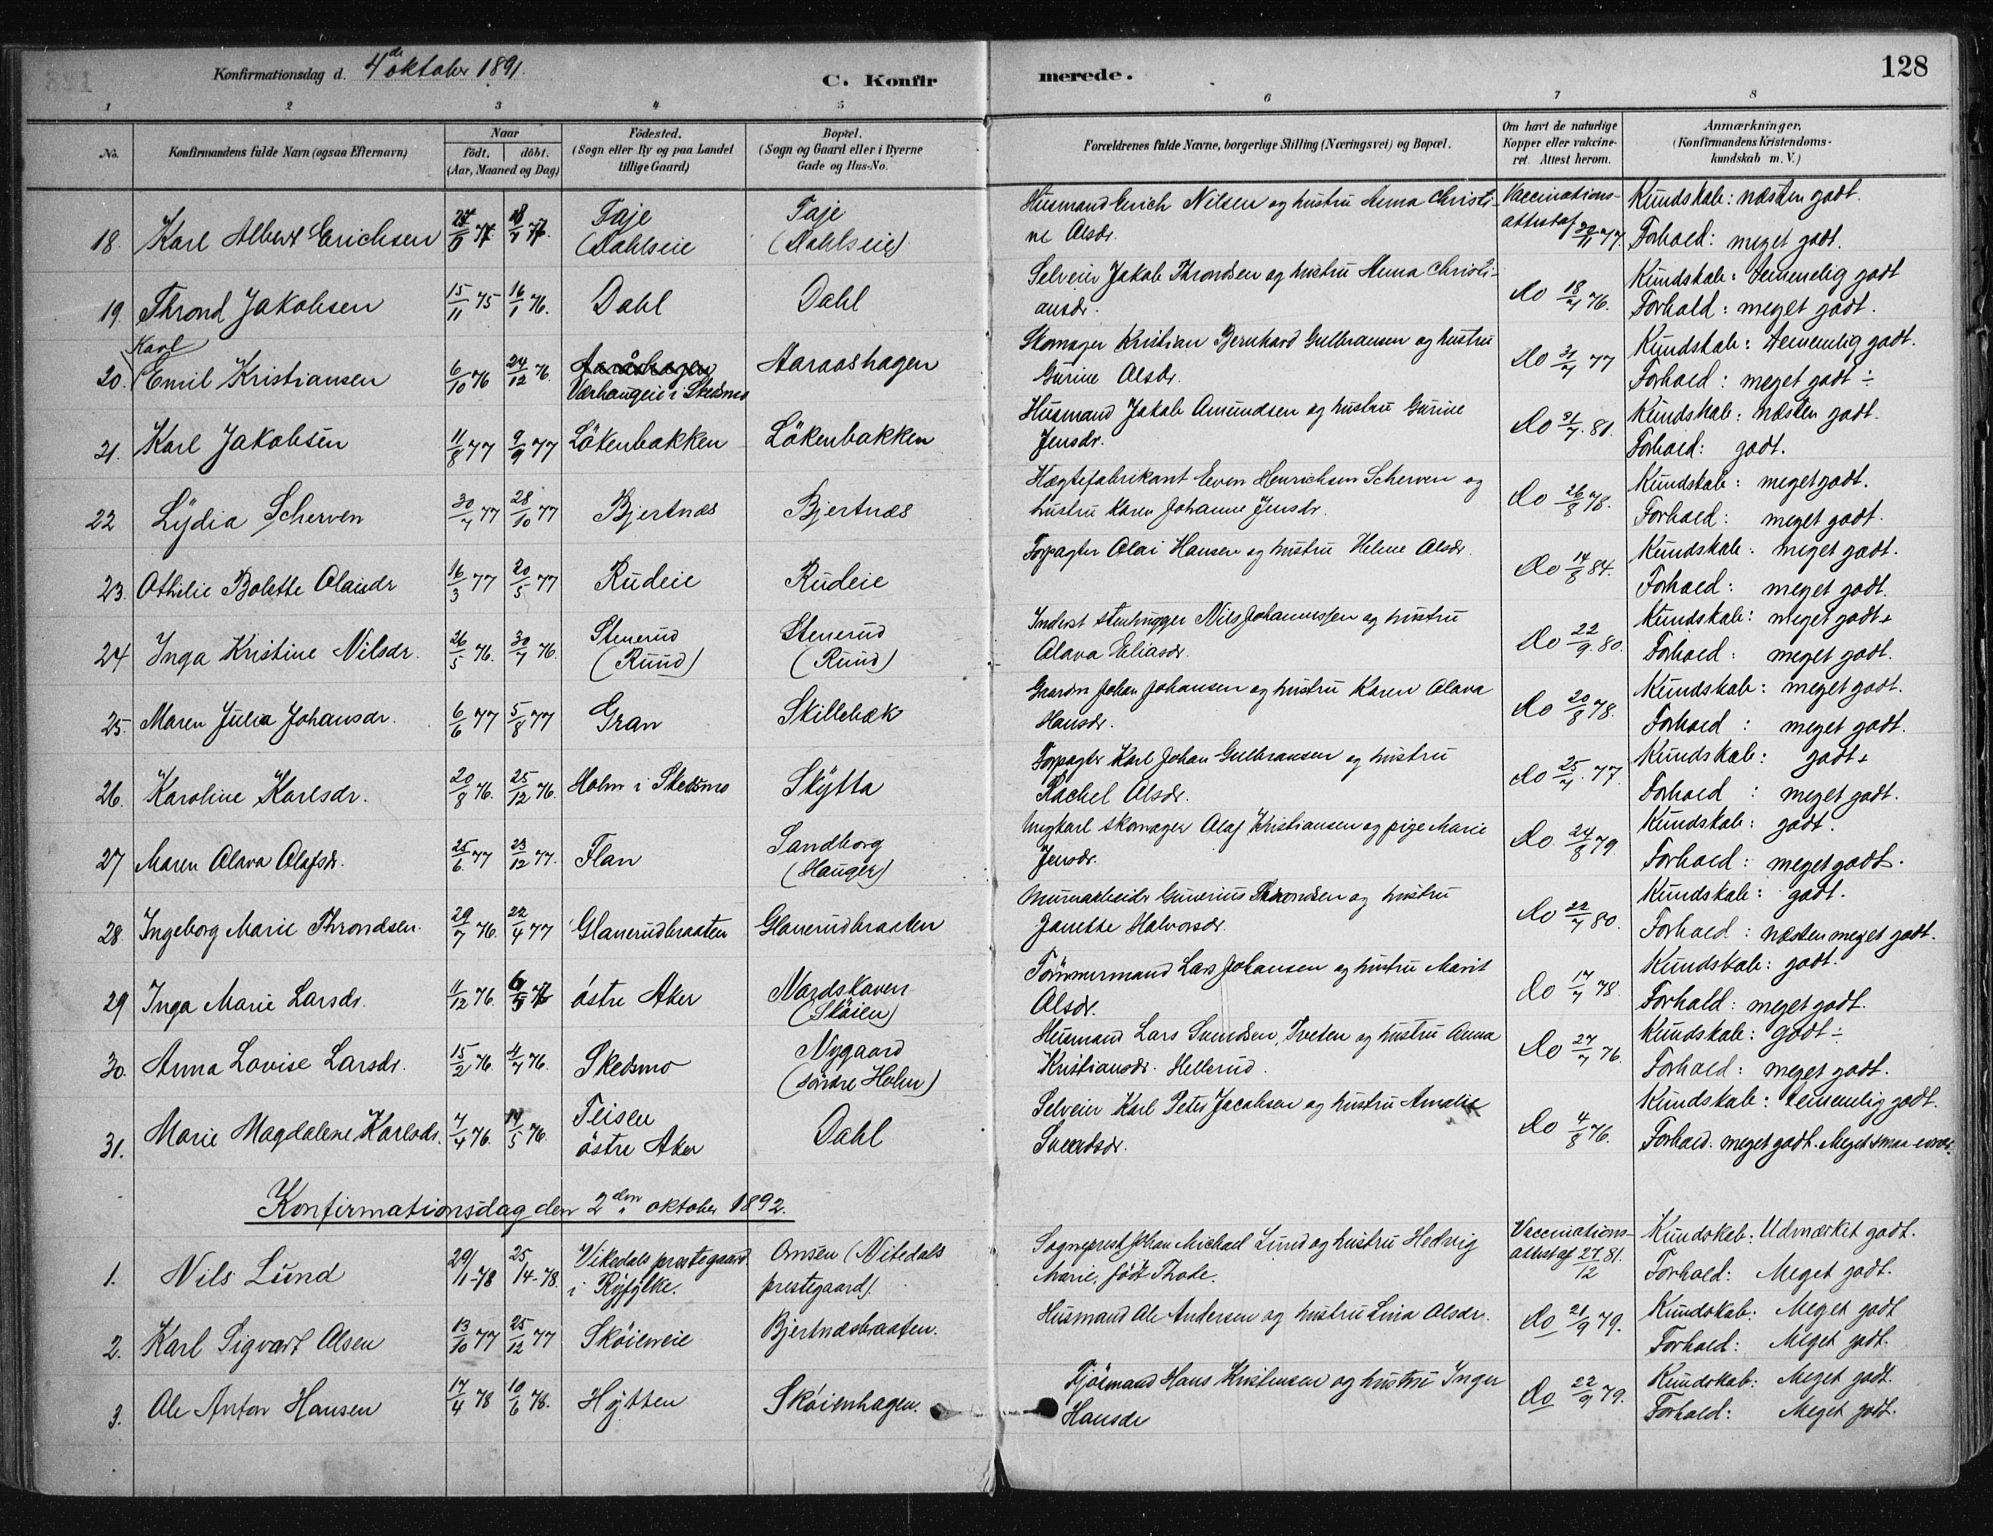 Konfirmationsdag d. 4de oktober 1891.
C. Konfir
merede.
128
1 2 3 4 5 6 7 8
No.
Konfirmandens fulde Navn (ogsaa Efternavn)
Naar
født. døbt.
(Aar, Maaned og Dag)
Födested.
(Sogn eller By og paa Landet
tillige Gaard)
Bopæl.
(Sogn og Gaard eller i Byerne
Gade og Hus-No.
Forældrenes fulde Navne, borgerlige Stilling (Næringsvei) og Bopæl.
Om havt de naturlige
Kopper eller vakcine-
ret. Attest herom.
Anmærkninger.
(Konfirmandens Kristendoms-
kundskab m. V.)
18. Karl Albert Erichsen
Taje
(Dahlseie)
Taje
(Dahlseie)
Husmand Erich Nilsen og hustru Anna Christi-
ne Olsdr.
Vaccinations-
attest af 77.
Kundskab: næsten godt.
Forhold: meget godt.
19. Thrond Jakobsen 15/11 75 16/1 76. Dahl Dahl
Selveier Jakob Throndsen og hustru Anna Christi-
ansdr.
Do 18/7 76.
Kundskab: temmelig godt
Forhold: meget godt.
Karl
20. Emil Kristiansen 6/10 76 24/12 76.
Aaråshagen
Værhaugeie i Skedsmo
Aaraashagen
Skomager Kristian Bernhard Gulbransen og hustru
Gurine Olsdr.
Do 31/7 77
Kundskab: temmelig godt.
Forhold: meget godt ÷
21. Karl Jakobsen 11/8 77 9/9 77 Løkenbakken Løkenbakken
Husmand Jakob Amundsen og hustru Gurine
Jensdr.
Do 31/7 81.
Kundskab: næsten godt.
Forhold: godt.
22 Lydia Scherven 30/7 77 28/10 77 Bjertnæs Bjertnæs
Hægtefabrikant Even Henrichsen Scherven og
hustru Karen Johanne Jensdr.
Do 26/8 78.
Kundskab: meget godt.
Forhold: meget godt.
23. Othilie Bolette Olaisdr 16/3 77 20/5 77 Rudeie Rudeie
Forpagter Olai Hansen og hustru Helene Olsdr.
Do 14/8 84.
Kundskab: meget godt.
Forhold: meget godt.
24 Inga Kristine Nilsdr. 26/5 76. 30/7 76.
Stenerud
(Ruud)
Stenerud
(Ruud)
Inderst stenhugger Nils Johannessen og hustru
Olava Eliasdr.
Do 22/9 80.
Kundskab: meget godt+
Forhold: meget godt.
25. Maren Julia Johansdr. 6/6 77 5/8 77 Gran Skillebæk
Gaardm Johan Johansen og hustru Karen Olava
Hansdr.
Do 20/8 78.
Kundskab: meget godt.
Forhold: meget godt.
26. Karoline Karlsdr. 20/8 76. 25/12 76. Holm i Skedsmo Skytta
Forpagter Karl Johan Gulbransen og hustru
Rachel Olsdr.
Do 25/7 77.
Kundskab: godt+
Forhold: meget godt.
27 Maren Olava Olafsdr. 25/6 77 23/12 77. Flan
Sandborg
(Hauger)
Ungkarl skomager Olaf Kristiansen og pige Marie
Jensdr.
Do 24/8 79.
Kundskab: godt.
Forhold: meget godt.
28. Ingeborg Marie Throndsen. 29/7 76. 22/4 77 Glanerudbraaten Glanerudbraaten
Murerarbeider Gunerius Throndsen og hustru
Janette Halvorsdr.
Do 22/7 80.
Kundskab: godt.
Forhold: næsten meget godt.
29 Inga Marie Larsdr. 11/12 76. østre Aker
Nordskoven
(Skøien)
Tømmermand Lars Johansen og hustru Marit
Olsdr.
Do 17/7 78.
Kundskab: godt.
Forhold: meget godt.
30. Anna Lovise Larsdr. 15/2 76. 4/7 76. Skedsmo
Nygaard
(søndre Holm)
Husmand Lars Svendsen Tveten og hustru Anna
Kristiansdr. Hellerud.
Do 27/7 76.
Kundskab: godt÷
Forhold: meget godt.
31. Marie Magdalene Karlsdr. 7/4 76. 14/5 76.
Teisen
østre Aker
Dahl
Selveier Karl Peter Jacobsen og hustru Amalie
Sveendsdr.
Do 4/8 76.
Kundskab: temmelig godt.
Forhold. meget godt. Meget smaa-evner.
Konfirmationsdag den 2den oktober 1892.
1. Nils Lund 29/1-78 25/4-78.
Vikedals prestegaard
i Ryfylke.
Onsen (Nitedals
prestegaard).
Sogneprest Johan Michael Lund og hustru Hedvig
Marie, født Thode.
Vaccinations-
attest af 27/12 81.
Kundskab: Udmærket godt.
Forhold: Meget godt.
2. Karl Sigvart Olsen 13/10 77 25/12 77 Skøieneie Bjertnæsbraaten.
Husmand Ole Andersen og hustru Lina Olsdr.
Do 21/9 79.
Kundskab: Meget godt
Forhold: Meget godt.
3. Ole Anton Hansen 17/4 78 10/6 78. Hytten Skøienhagen.
Tjøsmand Hans Kristensen og hustru Inger
Hansdr
Do 22/9 79.
Kundskab: Meget godt.
Forhold: Meget godt.